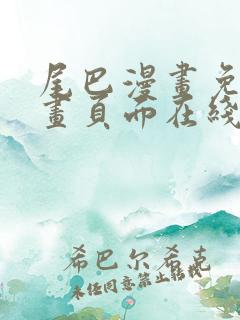 尾巴漫畫免
畫頁面在綫
希巴尔希克
未经同意禁止转载